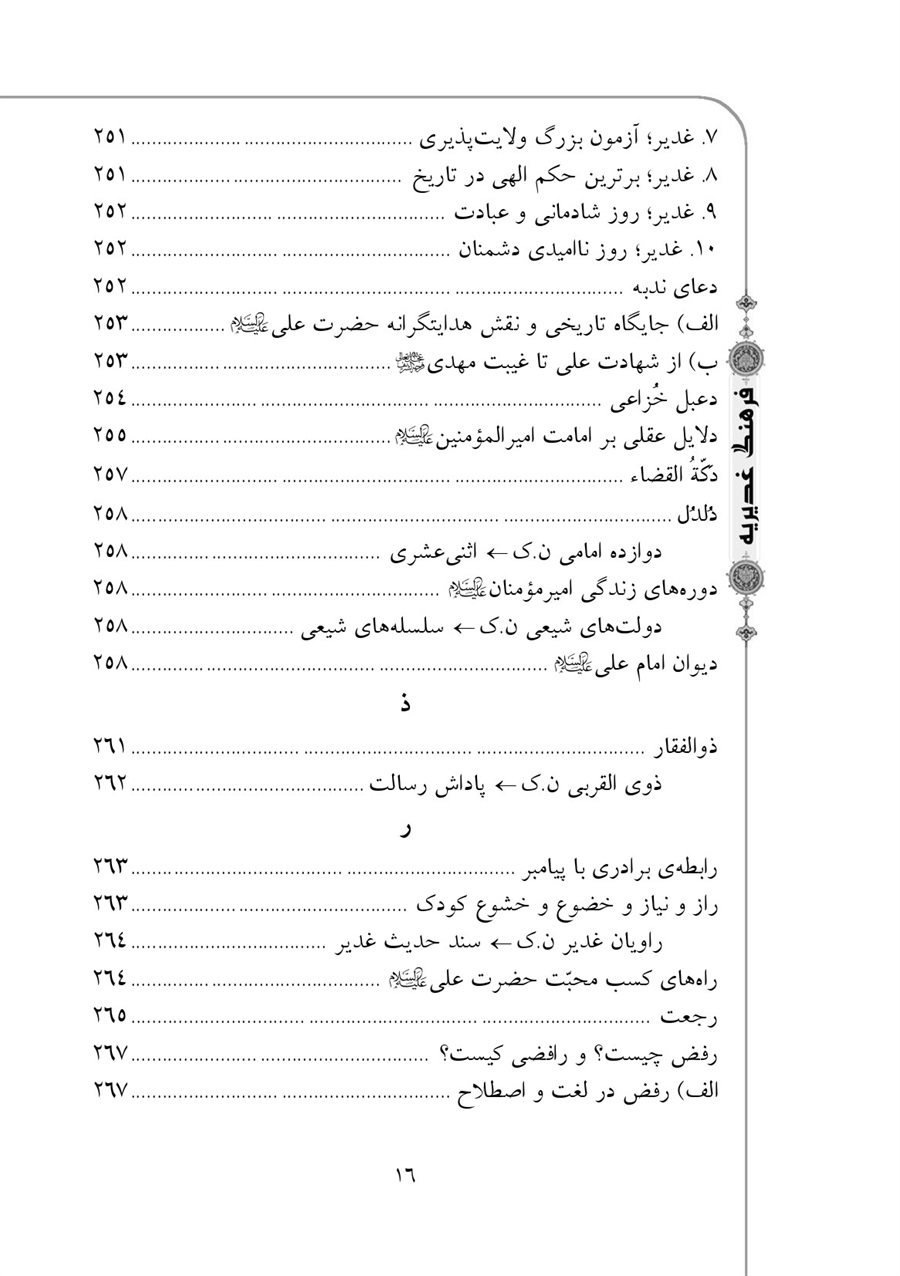 ۷. غدیر؛ آزمون بزرگ ولایت‌پذیری ........................................................ ۲۵۱
۸. غدیر؛ برترین حکم الهی در تاریخ ........................................................ ۲۵۱
۹. غدیر؛ روز شادمانی و عبادت ........................................................ ۲۵۲
۱۰. غدیر؛ روز ناامیدی دشمنان ........................................................ ۲۵۲
دعای ندبه ........................................................ ۲۵۲
الف) جایگاه تاریخی و نقش هدایتگرانه حضرت علی علیه‌السلام .................. ۲۵۳
ب) از شهادت علی تا غیبت مهدی ................................................ ۲۵۳
دعبل خُزاعی ........................................................ ۲۵٤
دلایل عقلی بر امامت امیرالمؤمنین علیه‌السلام ................................................ ۲۵۵
دَکّةُ القضاء ........................................................ ۲۵۷
دُلدُل ........................................................ ۲۵۸
دوازده امامی ن.ک ← اثنی‌عشری ................................................ ۲۵۸
دوره‌های زندگی امیرمؤمنان علیه‌السلام ........................................................ ۲۵۸
دولت‌های شیعی ن.ک ← سلسله‌های شیعی ................................ ۲۵۸
دیوان امام علی علیه‌السلام ........................................................ ۲۵۸
ذ
ذوالفقار ........................................................ ۲٦۱
ذوی القربی ن.ک ← پاداش رسالت ............................................ ۲٦۲
ر
رابطه‌ی برادری با پیامبر ........................................................ ۲٦۳
راز و نیاز و خضوع و خشوع کودک ........................................................ ۲٦۳
راویان غدیر ن.ک ← سند حدیث غدیر ...................................... ۲٦٤
راه‌های کسب محبّت حضرت علی علیه‌السلام ................................................ ۲٦٤
رجعت ........................................................ ۲٦۵
رفض چیست؟ و رافضی کیست؟ ........................................................ ۲٦۷
الف) رفض در لغت و اصطلاح ........................................................ ۲٦۷
۱٦
فرهنگ غدیریه